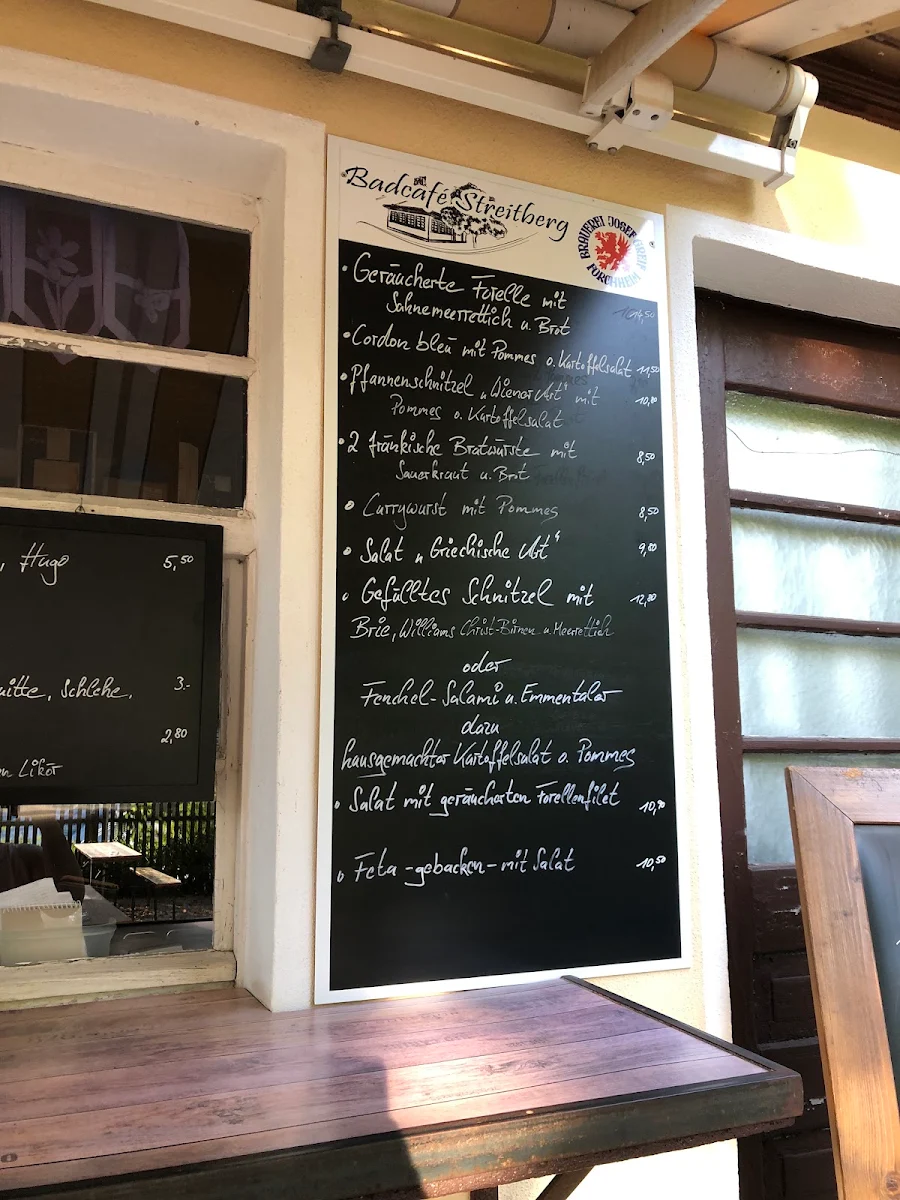 Badcafé Streitberg
BRAUEREI JOSEF GREIF
FORCHHEIM
• Geräucherte Forelle mit
Sahnemeerrettich u. Brot 14,50
• Cordon bleu mit Pommes o. Kartoffelsalat 11,50
• Pfannenschnitzel „Wiener Art“ mit 10,80
Pommes o. Kartoffelsalat
• 2 fränkische Bratwürste mit 8,50
Sauerkraut u. Brot
• Currywurst mit Pommes 8,50
• Salat „Griechische Art“ 9,80
• Gefülltes Schnitzel mit 12,80
Brie, Williams Christ-Birnen u. Meerrettich
oder
Fenchel-Salami u. Emmentaler
dazu
hausgemachter Kartoffelsalat o. Pommes
• Salat mit geräucherten Forellenfilet 10,90
• Feta -gebacken- mit Salat 10,50
, Hugo 5,50
itte, Schlehe, 3.-
2,80
en Likör